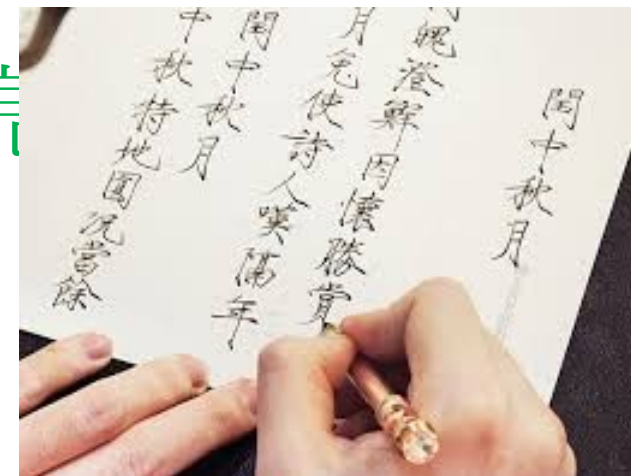 閏中秋月
魄澄鮮因懷勝賞
月免使詩人嘆隔年
閏中秋月
中秋特地圓况當餘